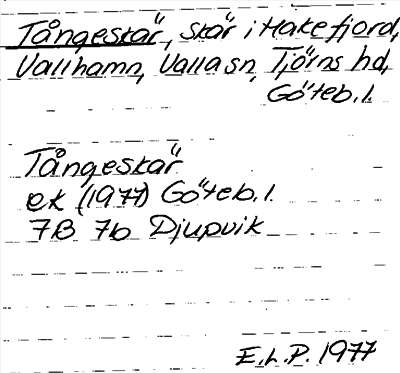 Tångeskär, skär i Hakefjord,
Vallhamn, Valla sn, Tjörns hd,
Göteb. l.
Tångeskär
ek (1977) Göteb. l.
7B 7b Djupvik
E.L.P. 1977